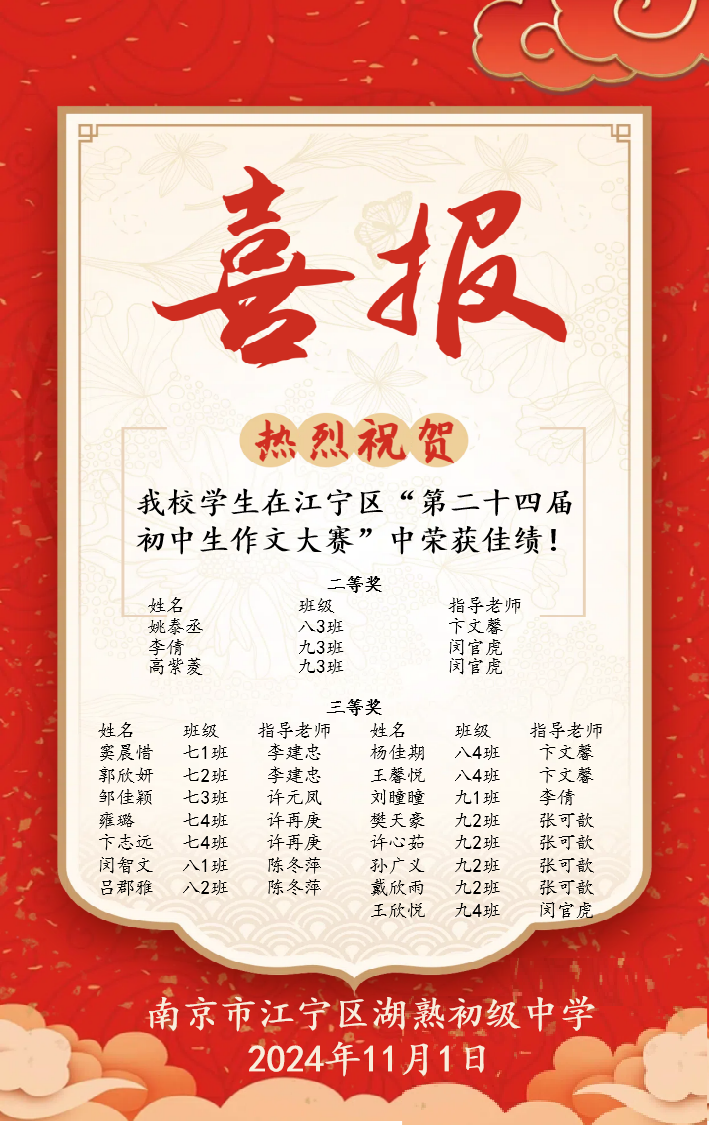 喜报
热烈祝贺
我校学生在江宁区“第二十四届
初中生作文大赛”中荣获佳绩！
二等奖
姓名 班级 指导老师
姚泰丞 八3班 卞文馨
李倩 九3班 闵官虎
高紫菱 九3班 闵官虎
三等奖
姓名 班级 指导老师 姓名 班级 指导老师
窦晨惜 七1班 李建忠 杨佳期 八4班 卞文馨
郭欣妍 七2班 李建忠 王馨悦 八4班 卞文馨
邹佳颖 七3班 许元凤 刘瞳瞳 九1班 李倩
雍璐 七4班 许再庚 樊天豪 九2班 张可歆
卞志远 七4班 许再庚 许心茹 九2班 张可歆
闵智文 八1班 陈冬萍 孙广义 九2班 张可歆
吕郡雅 八2班 陈冬萍 戴欣雨 九2班 张可歆
王欣悦 九4班 闵官虎
南京市江宁区湖熟初级中学
2024年11月1日